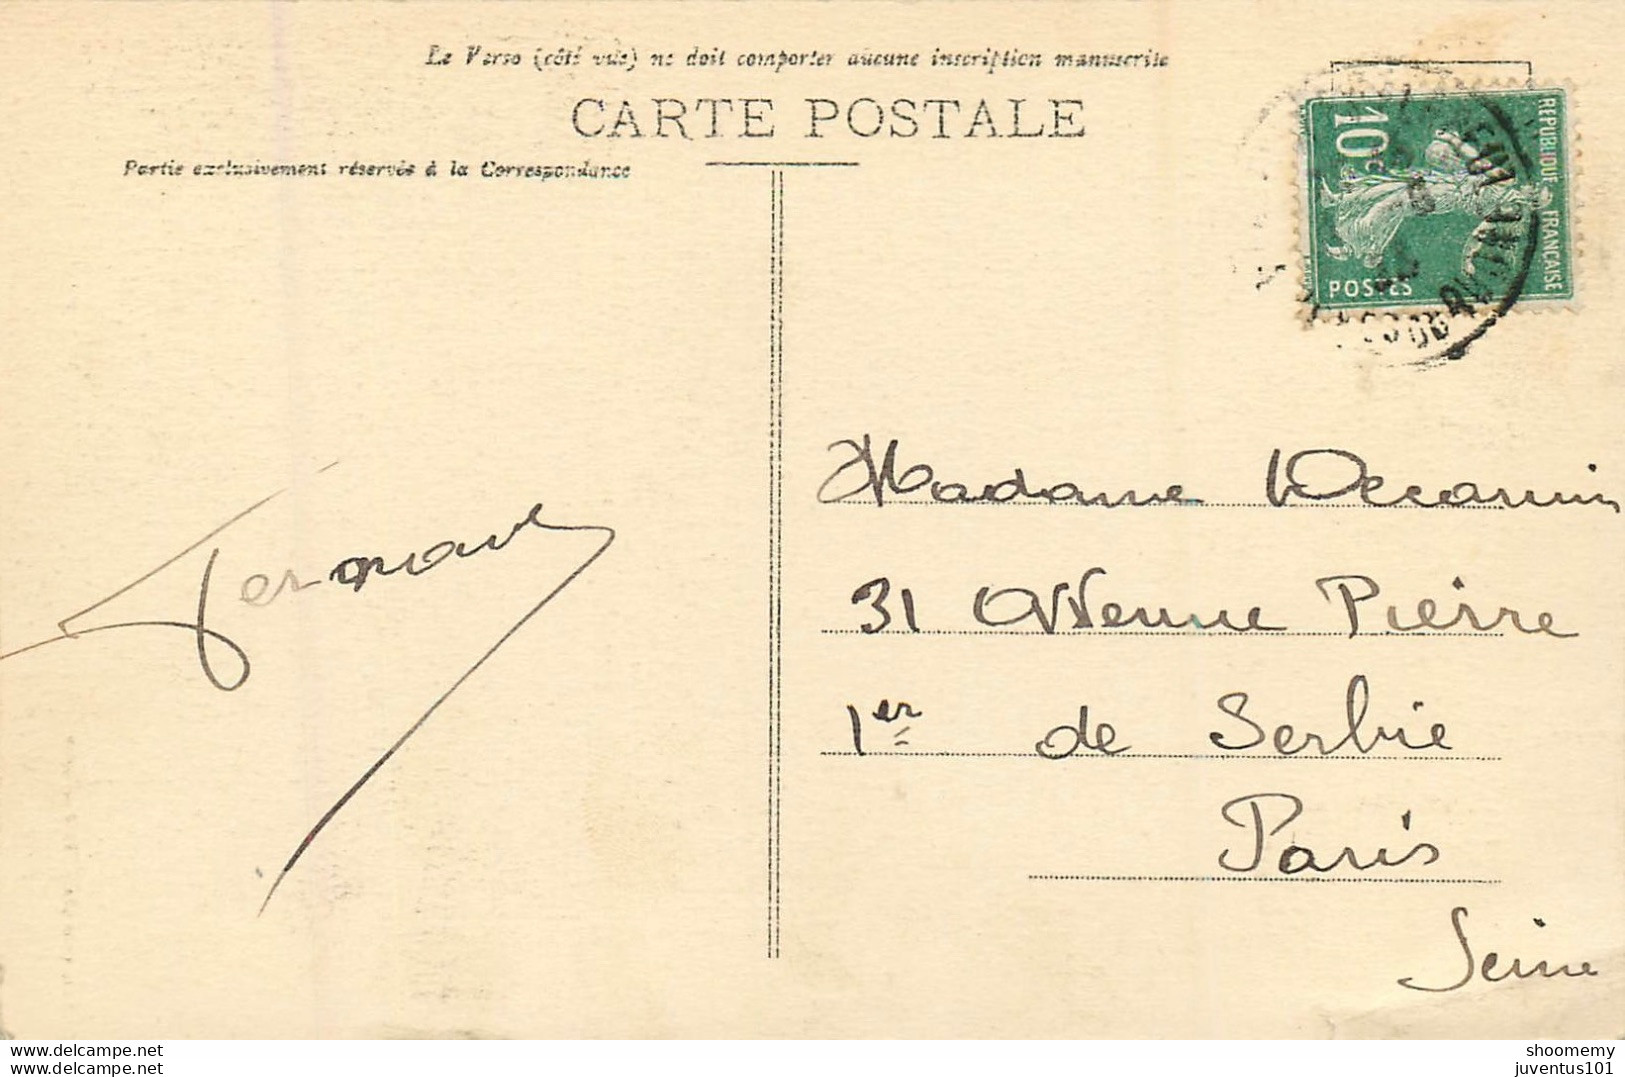 Le Verso (côté vue) ne doit comporter aucune inscription manuscrite
CARTE POSTALE
Partie exclusivement réservée à la Correspondance
10c
REPUBLIQUE FRANÇAISE
POSTES
Fernand
Madame
31 Avenue Pierre
1er de Serbie
Paris
Seine
www.delcampe.net
shoomemy
juventus101